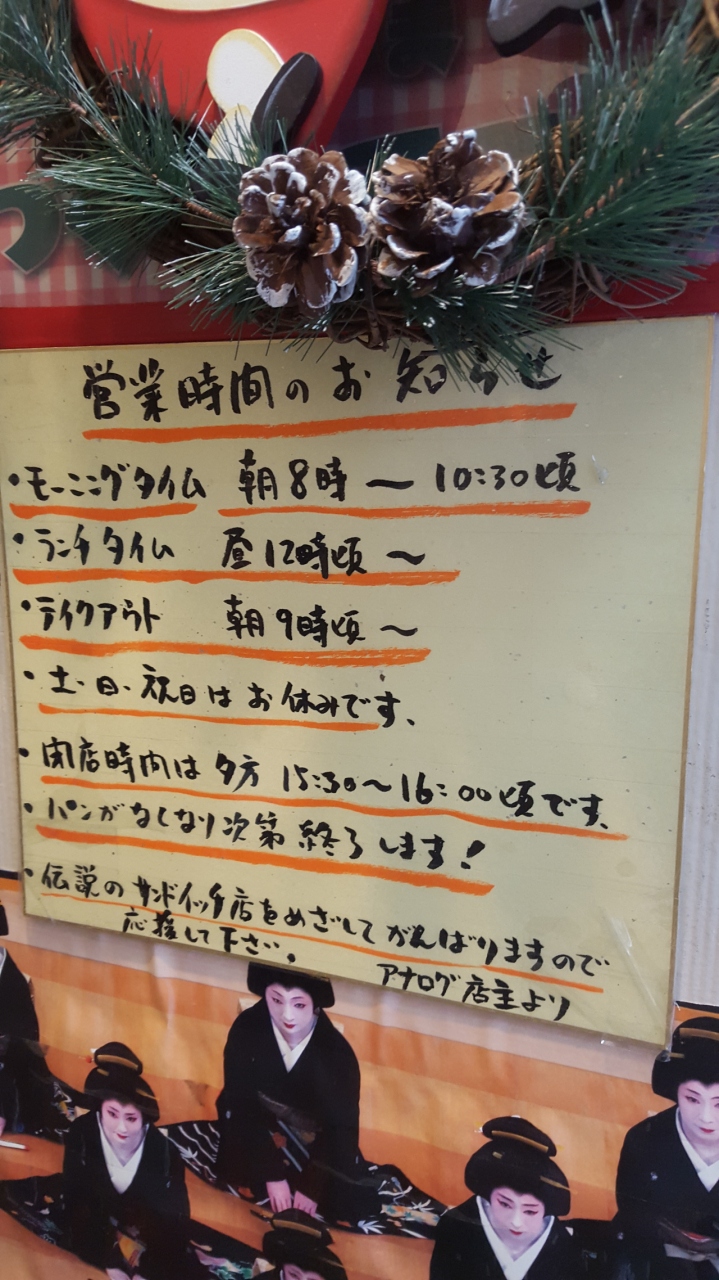 営業時間のお知らせ
・モーニングタイム 朝8時～10:30頃
・ランチタイム 昼12時頃～
・テイクアウト 朝9時頃～
・土・日・祝日はお休みです、
・閉店時間は夕方 15:30～16:00頃です、
・パンがなくなり次第終了します!
・伝説のサンドイッチ店をめざしてがんばりますので
応援して下さい。
アナログ店主より